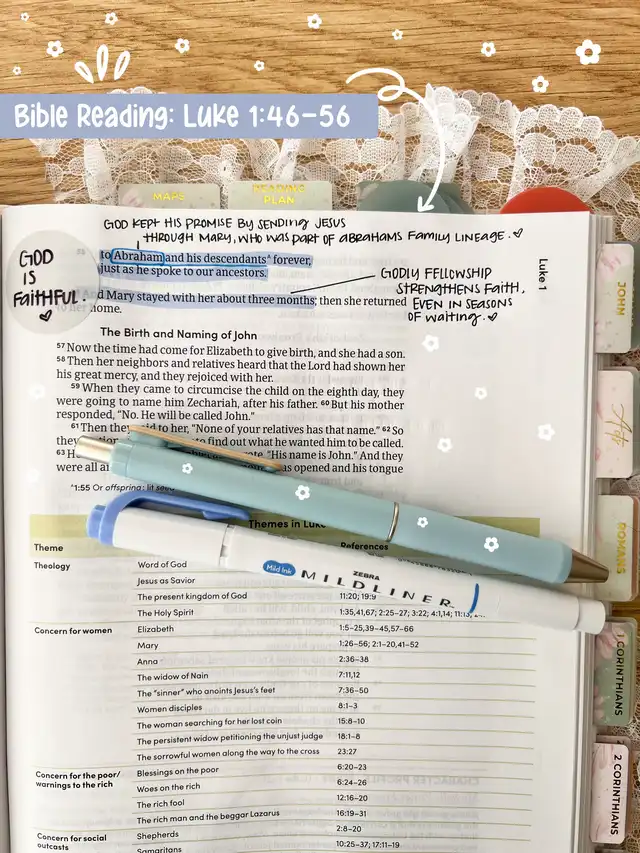 Bible Reading: Luke 1:46-56
MAPS
READING PLAN
GOD KEPT HIS PROMISE BY SENDING JESUS
THROUGH MARY, WHO WAS PART OF ABRAHAMS FAMILY LINEAGE.
GOD
IS
FAITHFUL.
to Abraham and his descendants^ forever,
just as he spoke to our ancestors.
GODLY FELLOWSHIP
STRENGTHENS FAITH,
EVEN IN SEASONS
OF waiting.
d Mary stayed with her about three months; then she returned
to her home.
Luke 1
The Birth and Naming of John
57 Now the time had come for Elizabeth to give birth, and she had a son.
58 Then her neighbors and relatives heard that the Lord had shown her
his great mercy, and they rejoiced with her.
59 When they came to circumcise the child on the eighth day, they
were going to name him Zechariah, after his father. 60 But his mother
responded, "No. He will be called John."
61 Then they said to her, "None of your relatives has that name." 62 So
they to find out what he wanted him to be called.
63 "His name is John." And they
were all opened and his tongue
^1:55 Or offspring; lit seed
Themes in Luke
Theme References
Theology Word of God
Jesus as Savior
The present kingdom of God 11:20; 19:9
The Holy Spirit 1:35,41,67; 2:25-27; 3:22; 4:1,14;
Mild Ink
ZEBRA
MILDLINER
Concern for women Elizabeth 1:5-25,39-45,57-66
Mary 1:26-56; 2:1-20,41-52
Anna 2:36-38
The widow of Nain 7:11,12
The "sinner" who anoints Jesus's feet 7:36-50
Women disciples 8:1-3
The woman searching for her lost coin 15:8-10
The persistent widow petitioning the unjust judge 18:1-8
The sorrowful women along the way to the cross 23:27
Concern for the poor/
warnings to the rich
Blessings on the poor 6:20-23
Woes on the rich 6:24-26
The rich fool 12:16-20
The rich man and the beggar Lazarus 16:19-31
Concern for social
outcasts
Shepherds 2:8-20
Samaritans 10:25-37; 17:11-19
JOHN
Acts
ROMANS
1 CORINTHIANS
2 CORINTHIANS